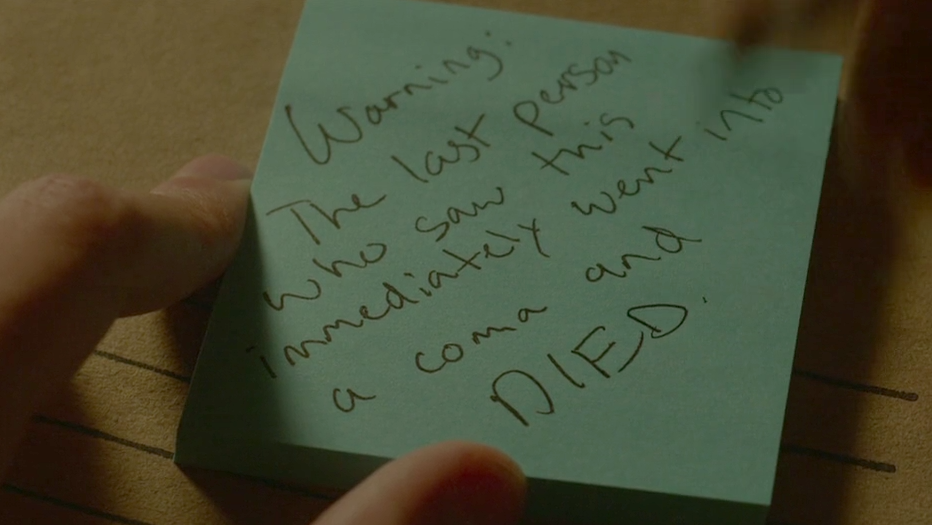 Warning:
The last person
who saw this
immediately went into
a coma and
DIED.